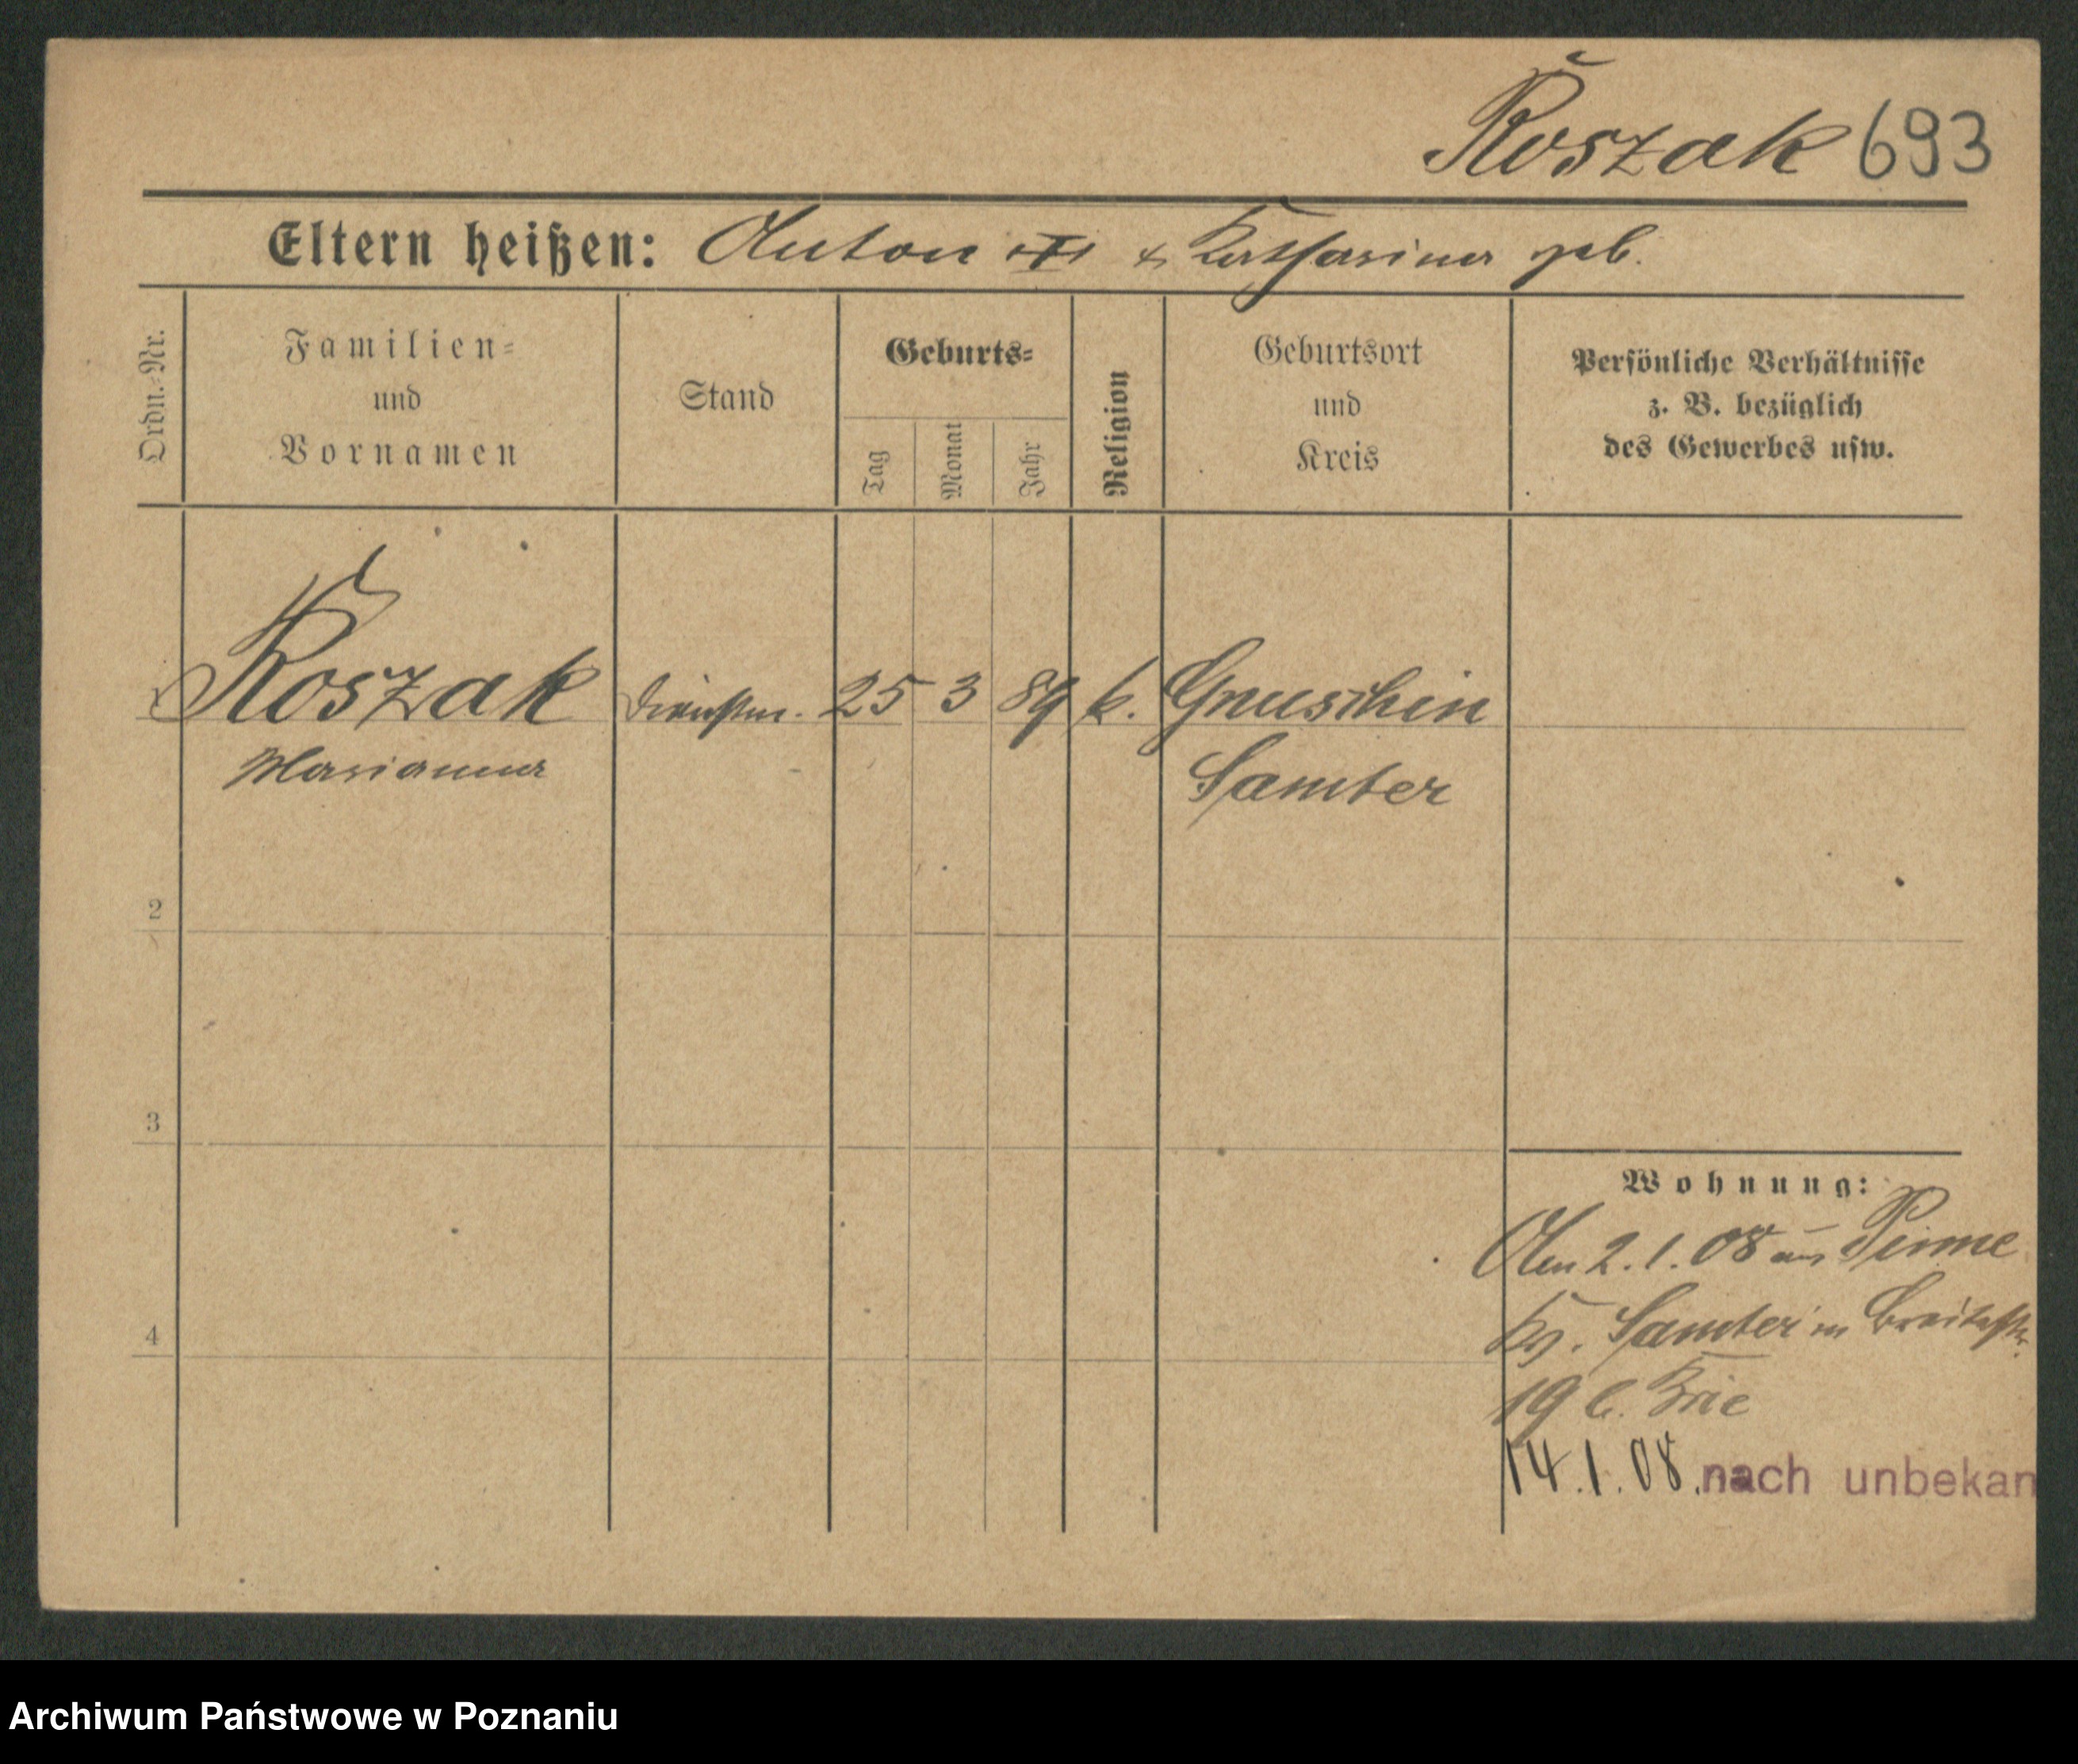 Koszak 693
Eltern heißen: Anton & Katharina geb.
Ordn.-Nr.
Familien-
und
Vornamen
Stand
Geburts-
Tag
Monat
Jahr
Religion
Geburtsort
und
Kreis
Persönliche Verhältnisse
z. B. bezüglich
des Gewerbes usw.
Koszak Dienstm. 25 3 89 k. Gnuschin
Marianna Samter
2
3
4
Wohnung:
Am 2.1.08 aus Pinne
Kr. Samter in Breitestr.
19 b.
14.1.08. nach unbekan
Archiwum Państwowe w Poznaniu